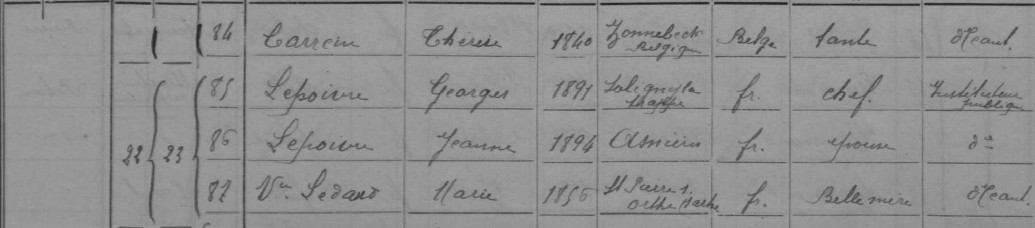 84 Carrein Thérèse 1840 Zonnebeck Belgique Belge tante Néant.
85 Lepoivre Georges 1891 Soligny la Trappe fr. chef. Instituteur publique
22 23 86 Lepoivre Jeanne 1894 Asnières fr. épouse d°
87 Vve Ledard Marie 1856 St Pierre s. Orthe Sarthe fr. Belle mère Néant.